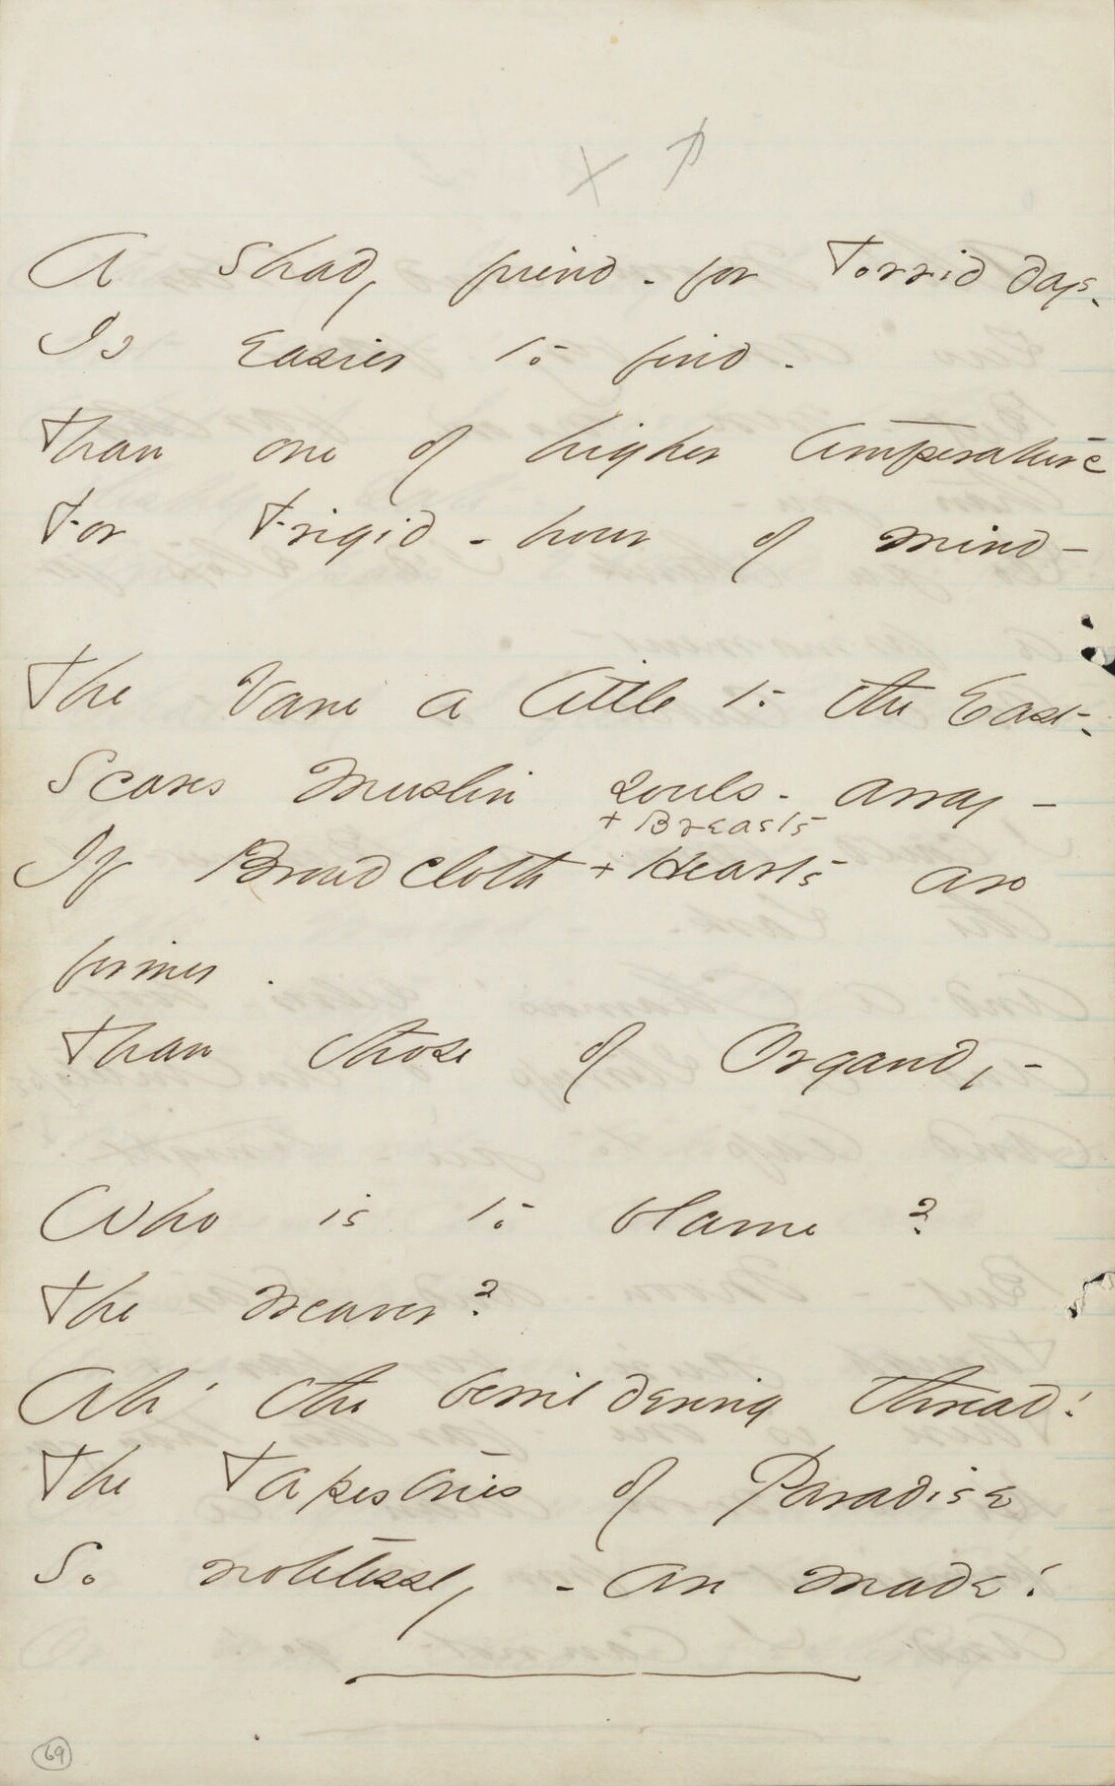 x
A Shady friend - for Torrid days -
Is Easier to find -
Than one of higher temperature
For Frigid - hour of mind -
The Vane a little to the East -
Scares Muslin souls - away -
+ Breasts
If Broadcloth + Hearts are
firmer -
Than those of Organdy -
Who is to blame?
The Weaver?
Ah! the bewildering thread!
The Tapestries of Paradise
So notelessly - are made!
69